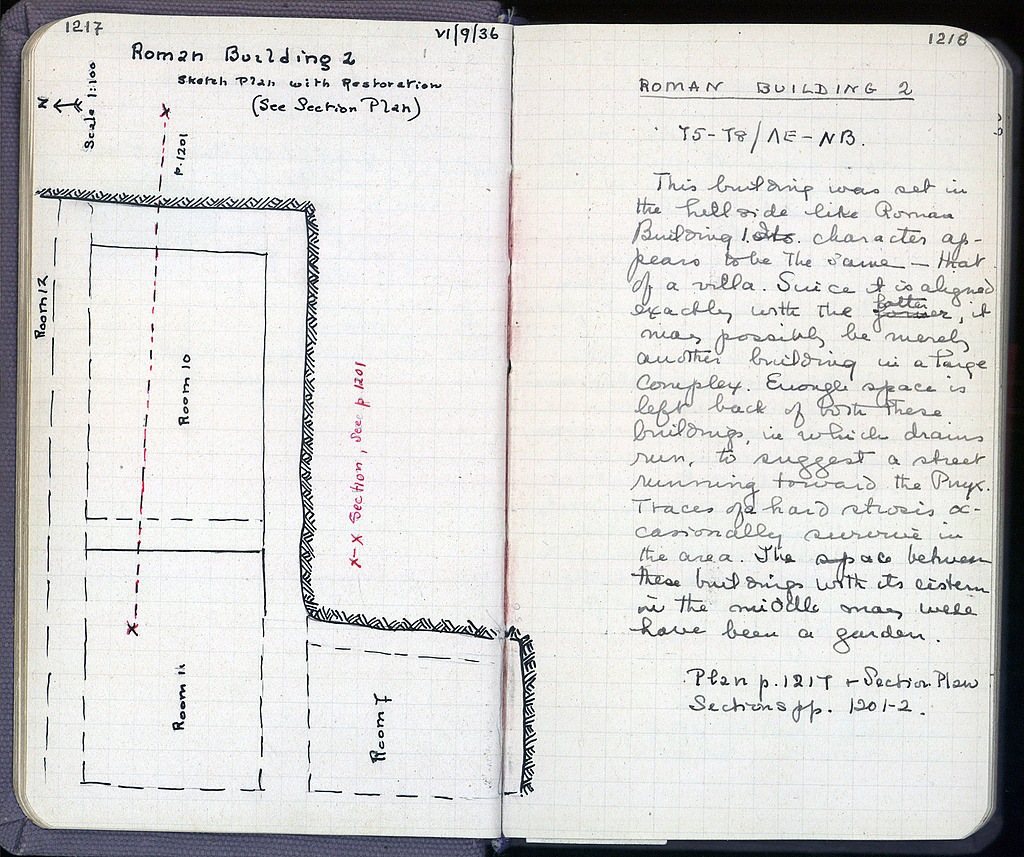 1217
VI/9/36
Roman Building 2
Sketch Plan with Restoration
(See Section Plan)
N
Scale 1:100
X
p.1201
Room 12
Room 10
X–X Section, See p 1201
X
Room 11
Room 7
1218
ROMAN BUILDING 2
75-78/ΛΕ-ΝΒ.
This building was set in
the hillside like Roman
Building 1. Its. character ap-
pears to be the same — that
of a villa. Since it is aligned
exactly with the latter former, it
may possibly be merely
another building in a large
complex. Enough space is
left back of both these
buildings, in which drains
run, to suggest a street
running toward the Pnyx.
Traces of a hard strosis oc-
casionally survive in
the area. The space between
these buildings with its cistern
in the middle may well
have been a garden.
Plan p.1217 + Section Plan
Sections pp. 1201-2.